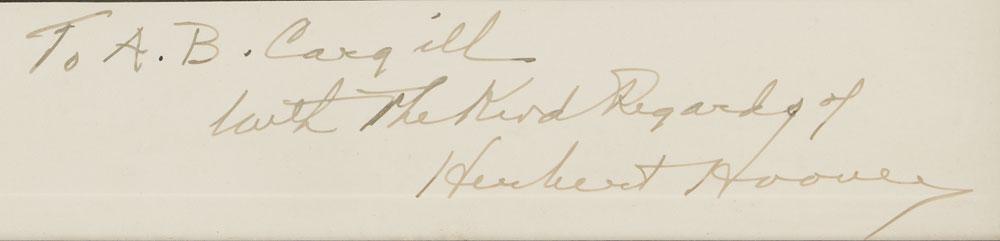 To A. B. Cargill
with The Kind Regards of
Herbert Hoover